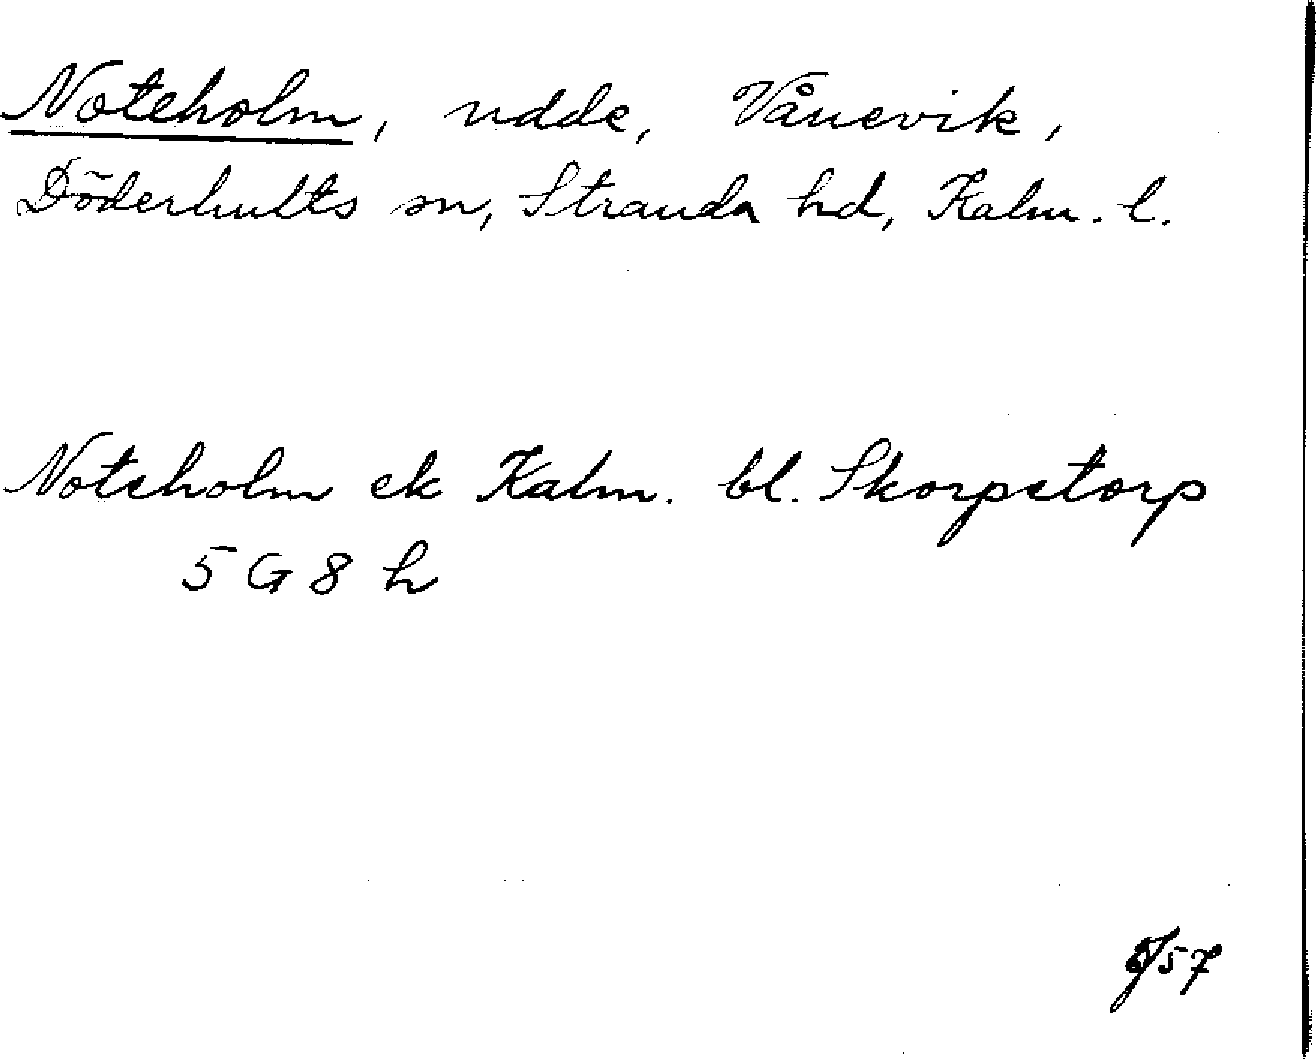 Noteholm, udde, Vånevik,
Döderhults sn, Stranda hd, Kalm. l.
Noteholm ek Kalm. bl. Skorpetorp
5 G 8 h
57